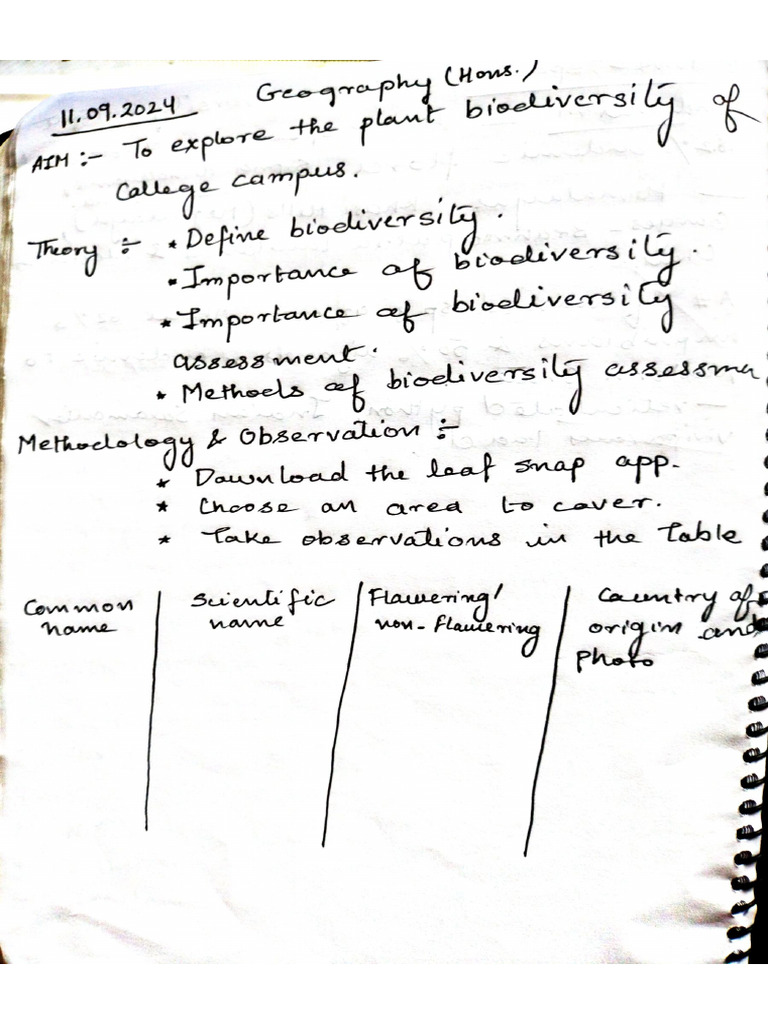 Geography (Hons.)
11.09.2024
AIM :- To explore the plant biodiversity of
College campus.
Theory :- * Define biodiversity.
* Importance of biodiversity.
* Importance of biodiversity
assessment.
* Methods of biodiversity assessme
Methodology & Observation :-
* Download the leaf snap app.
* Choose an area to cover.
* Take observations in the Table
Common name | Scientific name | Flowering/ non-flowering | Country of origin and photo